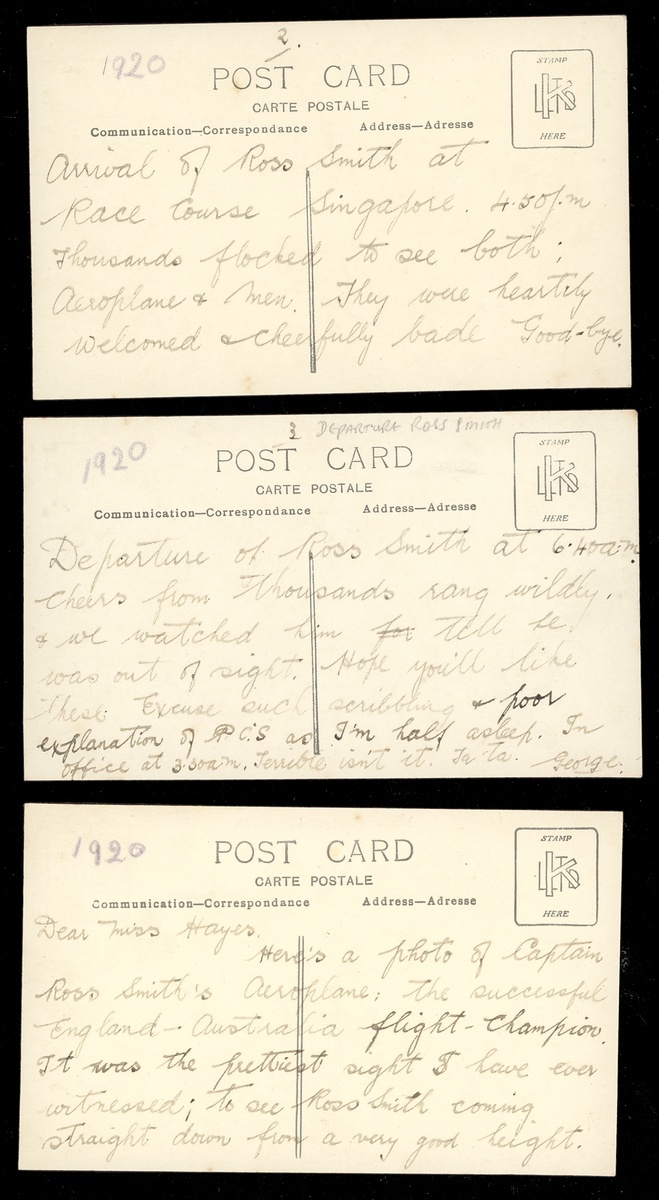 1920
2.
POST CARD
CARTE POSTALE
Communication—Correspondance Address—Adresse
STAMP
HERE
Arrival of Ross Smith at
Race Course Singapore. 4.50p.m
Thousands flocked to see both;
Aeroplane & Men. They were heartily
Welcomed & cheerfully bade Good-bye.
1920
3 DEPARTURE ROSS SMITH
POST CARD
CARTE POSTALE
Communication—Correspondance Address—Adresse
STAMP
HERE
Departure of Ross Smith at 6.40a.m
Cheers from Thousands rang wildly.
& we watched him for till he
was out of sight. Hope you'll like
these. Excuse such scribbling & poor
explanation of P.C.S as I'm half asleep. In
office at 3.30am. Terrible isn't it. Ta ta. George.
1920
POST CARD
CARTE POSTALE
Communication—Correspondance Address—Adresse
STAMP
HERE
Dear Miss Hayes.
Here's a photo of Captain
Ross Smith's Aeroplane; the successful
England - Australia flight-Champion.
It was the prettiest sight I have ever
witnessed; to see Ross Smith coming
straight down from a very good height.